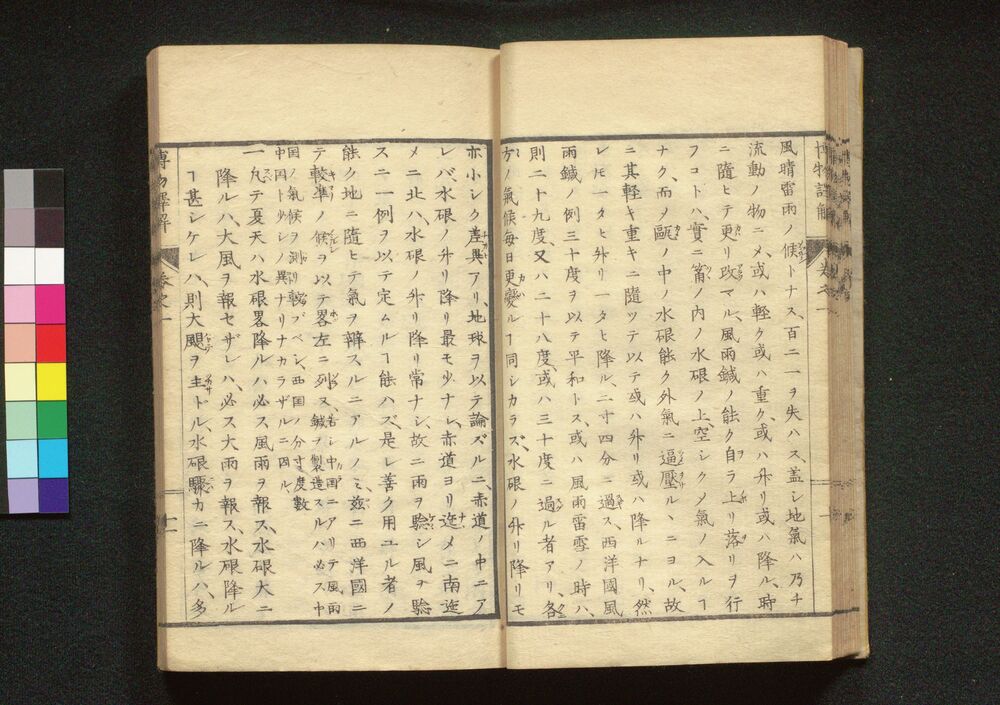 博物譯解 巻之一
風晴雷雨ノ候トナス、百ニ一ヲ失ハス、蓋シ地氣ハ乃チ
流動ノ物ニ乄、或ハ軽ク或ハ重ク、或ハ升リ或ハ降ル、時
ニ隨ヒテ更リ改マル、風雨鍼ノ能ク自ラ上リ落リヲ行
フコトハ、實ニ筩ノ内ノ水銀ノ上、空シク乄氣ノ入ルヿ
ナク、而乄甌ノ中ノ水銀能ク外氣ニ逼壓ル、ニヨル、故
ニ其軽キ重キニ隨ツテ以テ或ハ升リ或ハ降ルナリ、然
レ𪜈一タヒ升リ一タヒ降ル、二寸四分ニ過ス、西洋國風
雨鍼ノ例三十度ヲ以テ平和トス、或ハ風雨雷雪ノ時ハ、
則二十九度、又ハ二十八度、或ハ三十度ニ過ル者アリ、各
方ノ氣候毎日更變ルヿ同シカラズ、水銀ノ升リ降リモ
亦小シク差異アリ、地球ヲ以テ論ズルニ、赤道ノ中ニア
レバ、水銀ノ升リ降リ最モ少ナシ、赤道ヨリ迤メニ南迤
メニ北ハ、水銀ノ升リ降リ常ナシ、故ニ雨ヲ驗シ風ヲ驗
スニ一例ヲ以テ定ムルヿ能ハズ、是レ善ク用ユル者ノ
能ク地ニ隨ヒテ氣ヲ辨スルニアルノミ、茲ニ西洋國ニ
テ較準ノ候ヲ以テ畧左ニ列ス、若シ中國ニアリテ風雨鍼ヲ製造スルハ必ス中
国ノ氣候ヲ測リ較ブベシ、西国ノ分寸度數中国ト少シク異ナリナカラザルニ因ル
一凡テ夏天ハ水銀畧降ルハ必ス風雨ヲ報ス、水銀大ニ
降ルハ、大風ヲ報セザレハ、必ス大雨ヲ報ス、水銀降ル
ヿ甚シケレハ、則大颶ヲ主トル、水銀驟カニ降ルハ、多
博物譯解 巻之一 十一